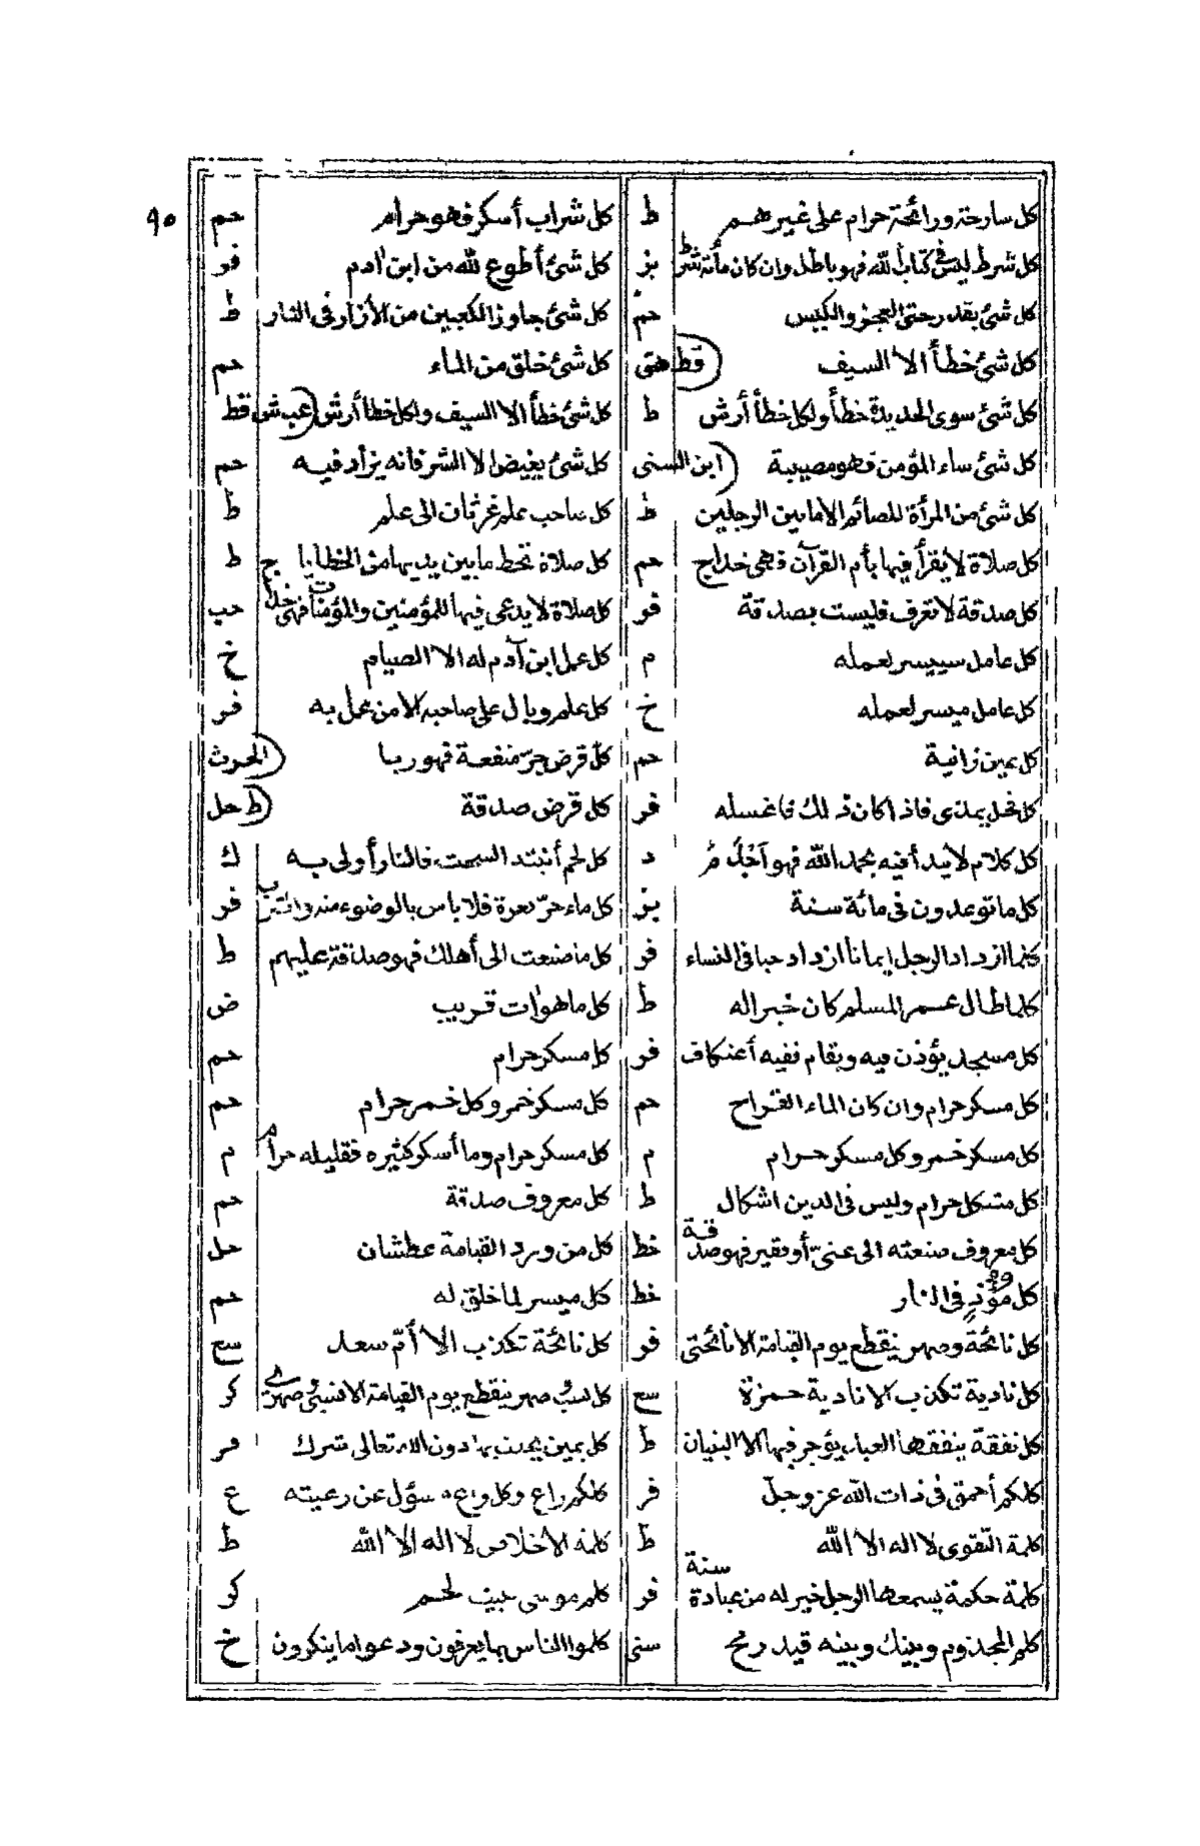 ٩٠
كل سارحة ورائحة حرام على غيرهم ط كل شراب أسكر فهو حرام حم
كل شرط ليس في كتاب الله فهو باطل وان كان مأة شرط بز كل شئ أطوع لله من ابن اٰدم فر
كل شئ بقدر حتى العجز والكيس حم كل شئ جاوز الكعبين من الأزار فى النار ط
كل شئ خطأ الا السيف قط هتى كل شئ خلق من الماء حم
كل شئ سوى الحديدة خطأ ولكل خطأ أرش ط كل شئ خطأ الا السيف ولكل خطأ أرش عب ش قط
كل شئ ساء المؤمن فهو مصيبة ابن السنى كل شئ يغيض الا الشر فانه يزاد فيه حم
كل شئ من المرأة للصائم الا مابين الرجلين ط كل صاحب علم غرثان الى علم ط
كل صلاة لا يقرأ فيها بأم القرآن فهى خداج حم كل صلاة تحط مابين يديها من الخطايا ط
كل صدقة لا تعرف فليست بصدقة فر كل صلاة لا يدعى فيها للمؤمنين والمؤمنات فهى خداج حب
كل عامل سييسر لعمله م كل عمل ابن آدم له الا الصيام خ
كل عامل ميسر لعمله خ كل علم وبال على صاحبه الا من عمل به فر
كل عين زانية حم كل قرض جرّ منفعة فهو ربا الحرث
كل فحل يمذى فاذا كان ذلك فاغسله فر كل قرض صدقة ط حل
كل كلام لا يبدأ فيه بحمد الله فهو أجذم د كل لحم أنبته السحت فالنار أولى به ك
كل ما توعدون فى مائة سنة بز كل ماء حرّ بعرة فلا باس بالوضوء منه والشرب فر
كلما ازداد الرجل ايمانا ازداد حبا فى النساء فر كل ما صنعت الى أهلك فهو صدقة عليهم ط
كلما طال عمر المسلم كان خير اله ط كل ما هو اٰت قريب ض
كل مسجد يؤذن فيه ويقام ففيه أعتكاف فر كل مسكر حرام حم
كل مسكر حرام وان كان الماء القراح حم كل مسكر خمر وكل خمر حرام حم
كل مسكر خمر وكل مسكر حرام م كل مسكر حرام وما أسكر كثيره فقليله حرام م
كل مشكل حرام وليس فى الدين اشكال ط كل معروف صدقة حم
كل معروف صنعته الى غنىّ أو فقير فهو صدقة خط كل من ورد القيامة عطشان حل
كل مؤذٍ فى النار خط كل ميسر لما خلق له حم
كل نائحة وصهر ينقطع يوم القيامة الا نائحتى فر كل نائحة تكذب الا أمّ سعد سع
كل نادبة تكذب الا نادبة حمزة سع كل نسب صهر ينقطع يوم القيامة الا نسبى صهرى كر
كل نفقة ينفقها العبد يؤجر فيها الا البنيان ط كل يمين يحلف بها دون الله تعالى شرك فر
كلكم أحمق فى ذات الله عز وجل فر كلكم راع وكل راع مسؤل عن رعيته ع
كلمة التقوى لا اله الا الله ط كلمة الاخلاص لا اله الا الله ط
كلمة حكمة يسمعها الرجل خير له من عبادة سنة فر كلم موسى ببيت لحم كر
كلم المجذوم وبينك وبينه قيد رمح سنى كلموا الناس بما يعرفون ودعوا ما ينكرون خ